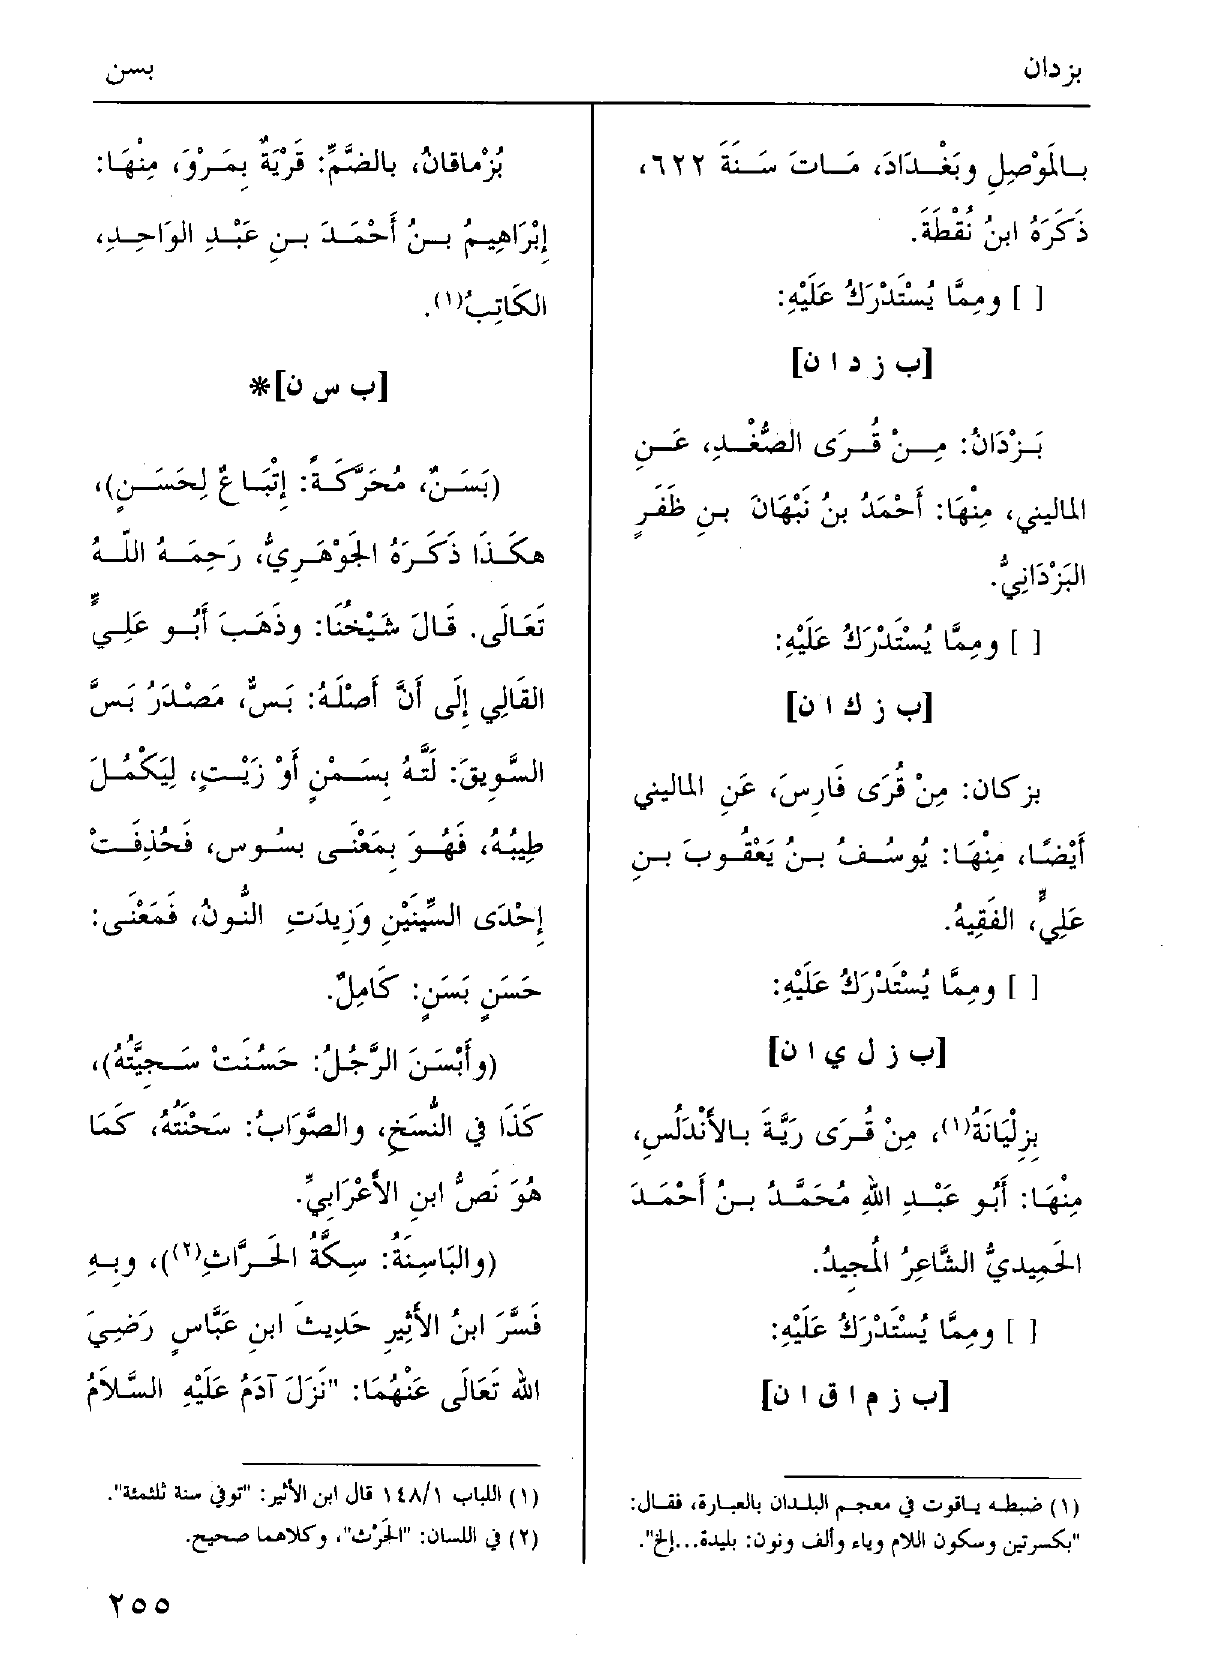 بزدان
بسن
بـالَموْصِلِ وبَغْـدَادَ، مَـاتَ سَـنَةَ ٦٢٢،
ذَكَرَهُ ابنُ نُقْطَةَ.
[ ] ومِمَّا يُسْتَدْرَكُ عَلَيْهِ:
[ب ز د ا ن]
بَـزْدَانُ: مِـنْ قُـرَى الصُّغْـدِ، عَـنِ
الماليني، مِنْهَا: أَحْمَدُ بنُ نَبْهَانَ بنِ ظَفَرٍ
البَزْدَانِيُّ.
[ ] ومِمَّا يُسْتَدْرَكُ عَلَيْهِ:
[ب ز ك ا ن]
بزكان: مِنْ قُرَى فَارِسَ، عَنِ الماليني
أَيْضًـا، مِنْهَـا: يُوسُـفُ بـنُ يَعْقُـوبَ بـنِ
عَلِيٍّ، الفَقِيهُ.
[ ] ومِمَّا يُسْتَدْرَكُ عَلَيْهِ:
[ب ز ل ي ا ن]
بِزِلْيَانَةُ(١)، مِنْ قُـرَى رَيَّةَ بـالأَنْدَلُسِ،
مِنْهَـا: أَبُو عَبْـدِ اللهِ مُحَمَّـدُ بـنُ أَحْمَـدَ
الحَمِيدِيُّ الشَّاعِرُ الُمجِيدُ.
[ ] ومِمَّا يُسْتَدْرَكُ عَلَيْهِ:
[ب ز م ا ق ا ن]
(١) ضبطه ياقوت في معجم البلدان بالعبارة، فقال:
"بكسرتين وسكون اللام وياء وألف ونون: بليدة...إلخ".
بُزْماقانُ، بالضَّمِّ: قَرْيَةٌ بِمَرْوَ، مِنْهَا:
إِبْرَاهِيـمُ بـنُ أَحْمَـدَ بـنِ عَبْـدِ الوَاحِـدِ،
الكَاتِبُ(١).
[ب س ن]*
(بَسَـنٌ، مُحَرَّكَـةً: إِتْبَـاعٌ لِحَسَـنٍ)،
هكَـذَا ذَكَـرَهُ الجَوْهَـرِيُّ، رَحِمَـهُ اللّـهُ
تَعَالَى. قَالَ شَيْخُنَا: وذَهَبَ أَبُـو عَلِـيٍّ
القَالِي إِلَى أَنَّ أَصْلَهُ: بَسٌّ، مَصْدَرُ بَسَّ
السَّوِيقَ: لَتَّهُ بِسَـمْنٍ أَوْ زَيْـتٍ، لِيَكْمُـلَ
طِيبُهُ، فَهُـوَ بِمَعْنَى بسُـوسٍ، فَحُذِفَـتْ
إِحْدَى السِّينَيْنِ وَزِيدَتِ النُّونُ، فَمَعْنَى:
حَسَنٍ بَسَنٍ: كَامِلٌ.
(وأَبْسَنَ الرَّجُلُ: حَسُنَتْ سَـجِيَّتُهُ)،
كَذَا في النُّسَخِ، والصَّوَابُ: سَحْنَتُهُ، كَمَا
هُوَ نَصُّ ابنِ الأَعْرَابِيِّ.
(والبَاسِنَةُ: سِكَّةُ الحَـرَّاثِ(٢))، وبِـهِ
فَسَّرَ ابنُ الأَثِيرِ حَدِيثَ ابنِ عَبَّاسٍ رَضِيَ
اللهُ تَعَالَى عَنْهُمَا: "نَزَلَ آدَمُ عَلَيْهِ السَّلاَمُ
(١) اللباب ١٤٨/١ قال ابن الأثير: "توفي سنة ثلثمئة".
(٢) في اللسان: "الحَرْث"، وكلاهما صحيح.
٢٥٥